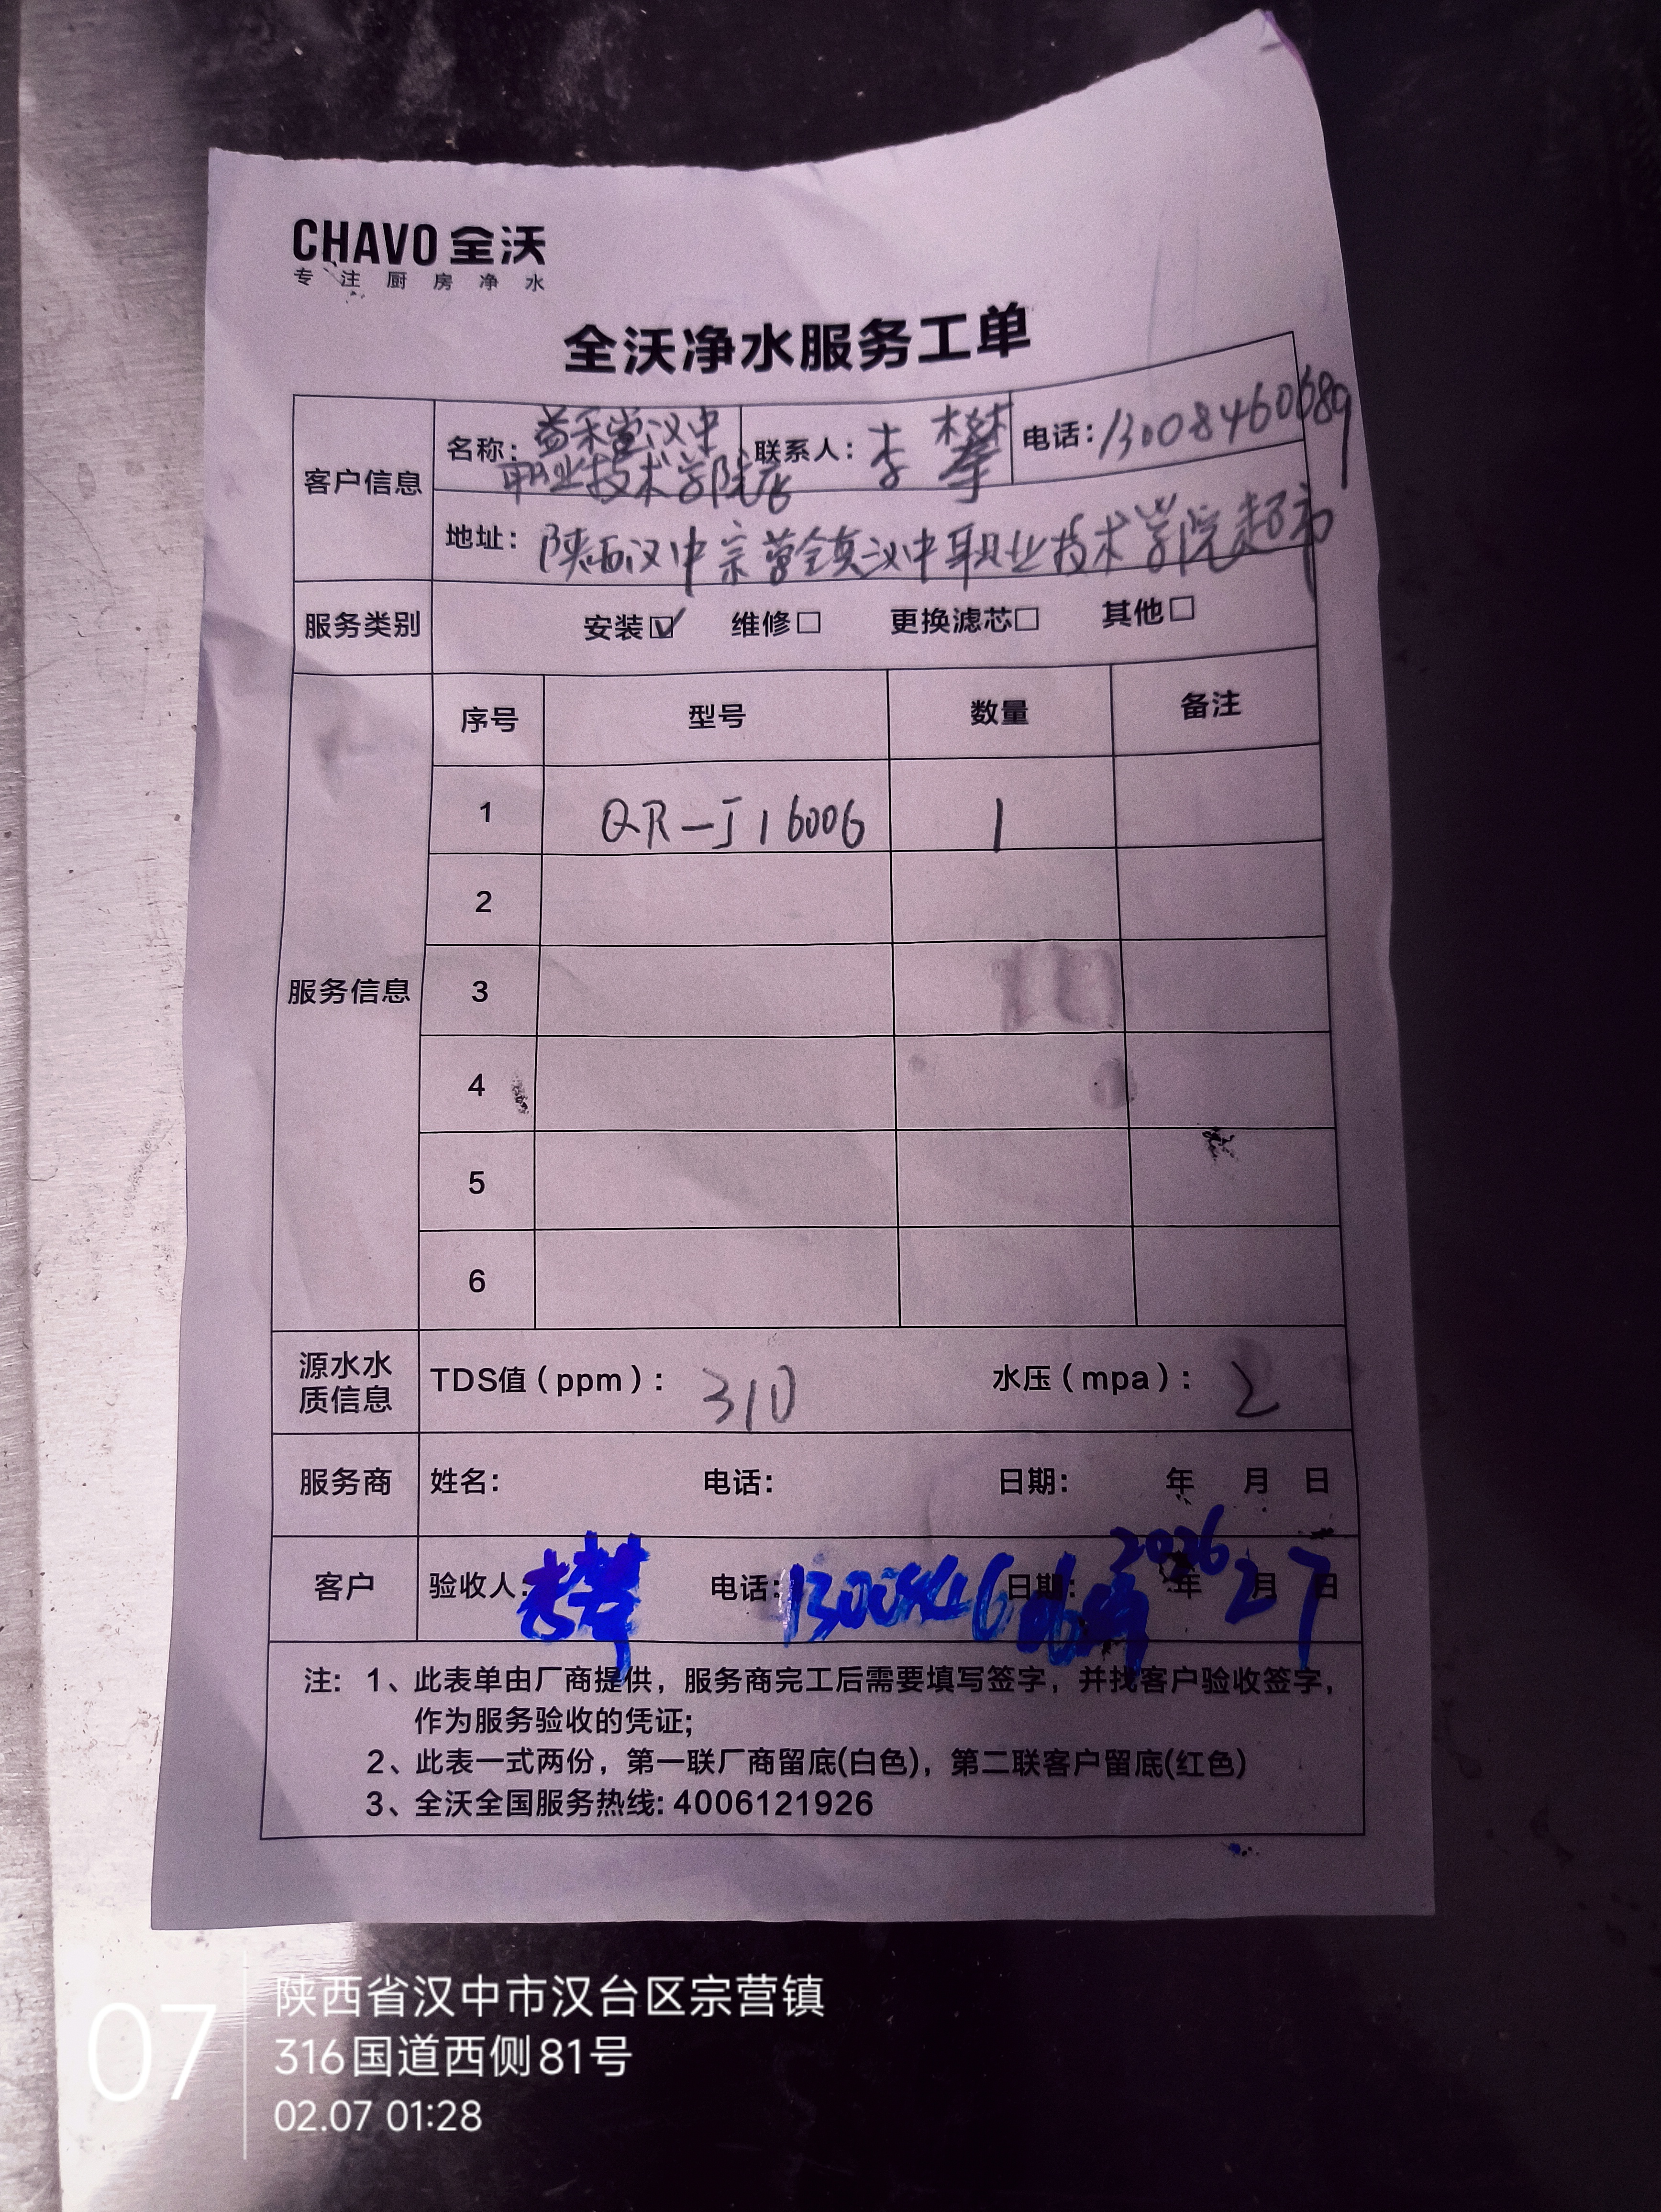 CHAVO 全沃
专注厨房净水
全沃净水服务工单
客户信息
名称：益禾堂汉中职业技术学院店 联系人：李攀 电话：13008460689
地址：陕西汉中宗营镇汉中职业技术学院超市
服务类别 安装☑ 维修☐ 更换滤芯☐ 其他☐
服务信息
序号 型号 数量 备注
1 QR-J1600G 1
2
3
4
5
6
源水水质信息 TDS值（ppm）：310 水压（mpa）：2
服务商 姓名： 电话： 日期： 年 月 日
客户 验收人：李攀 电话：13008460689 日期：2026年2月7日
注：1、此表单由厂商提供，服务商完工后需要填写签字，并找客户验收签字，
作为服务验收的凭证；
2、此表一式两份，第一联厂商留底(白色)，第二联客户留底(红色)
3、全沃全国服务热线：4006121926
07
陕西省汉中市汉台区宗营镇
316国道西侧81号
02.07 01:28